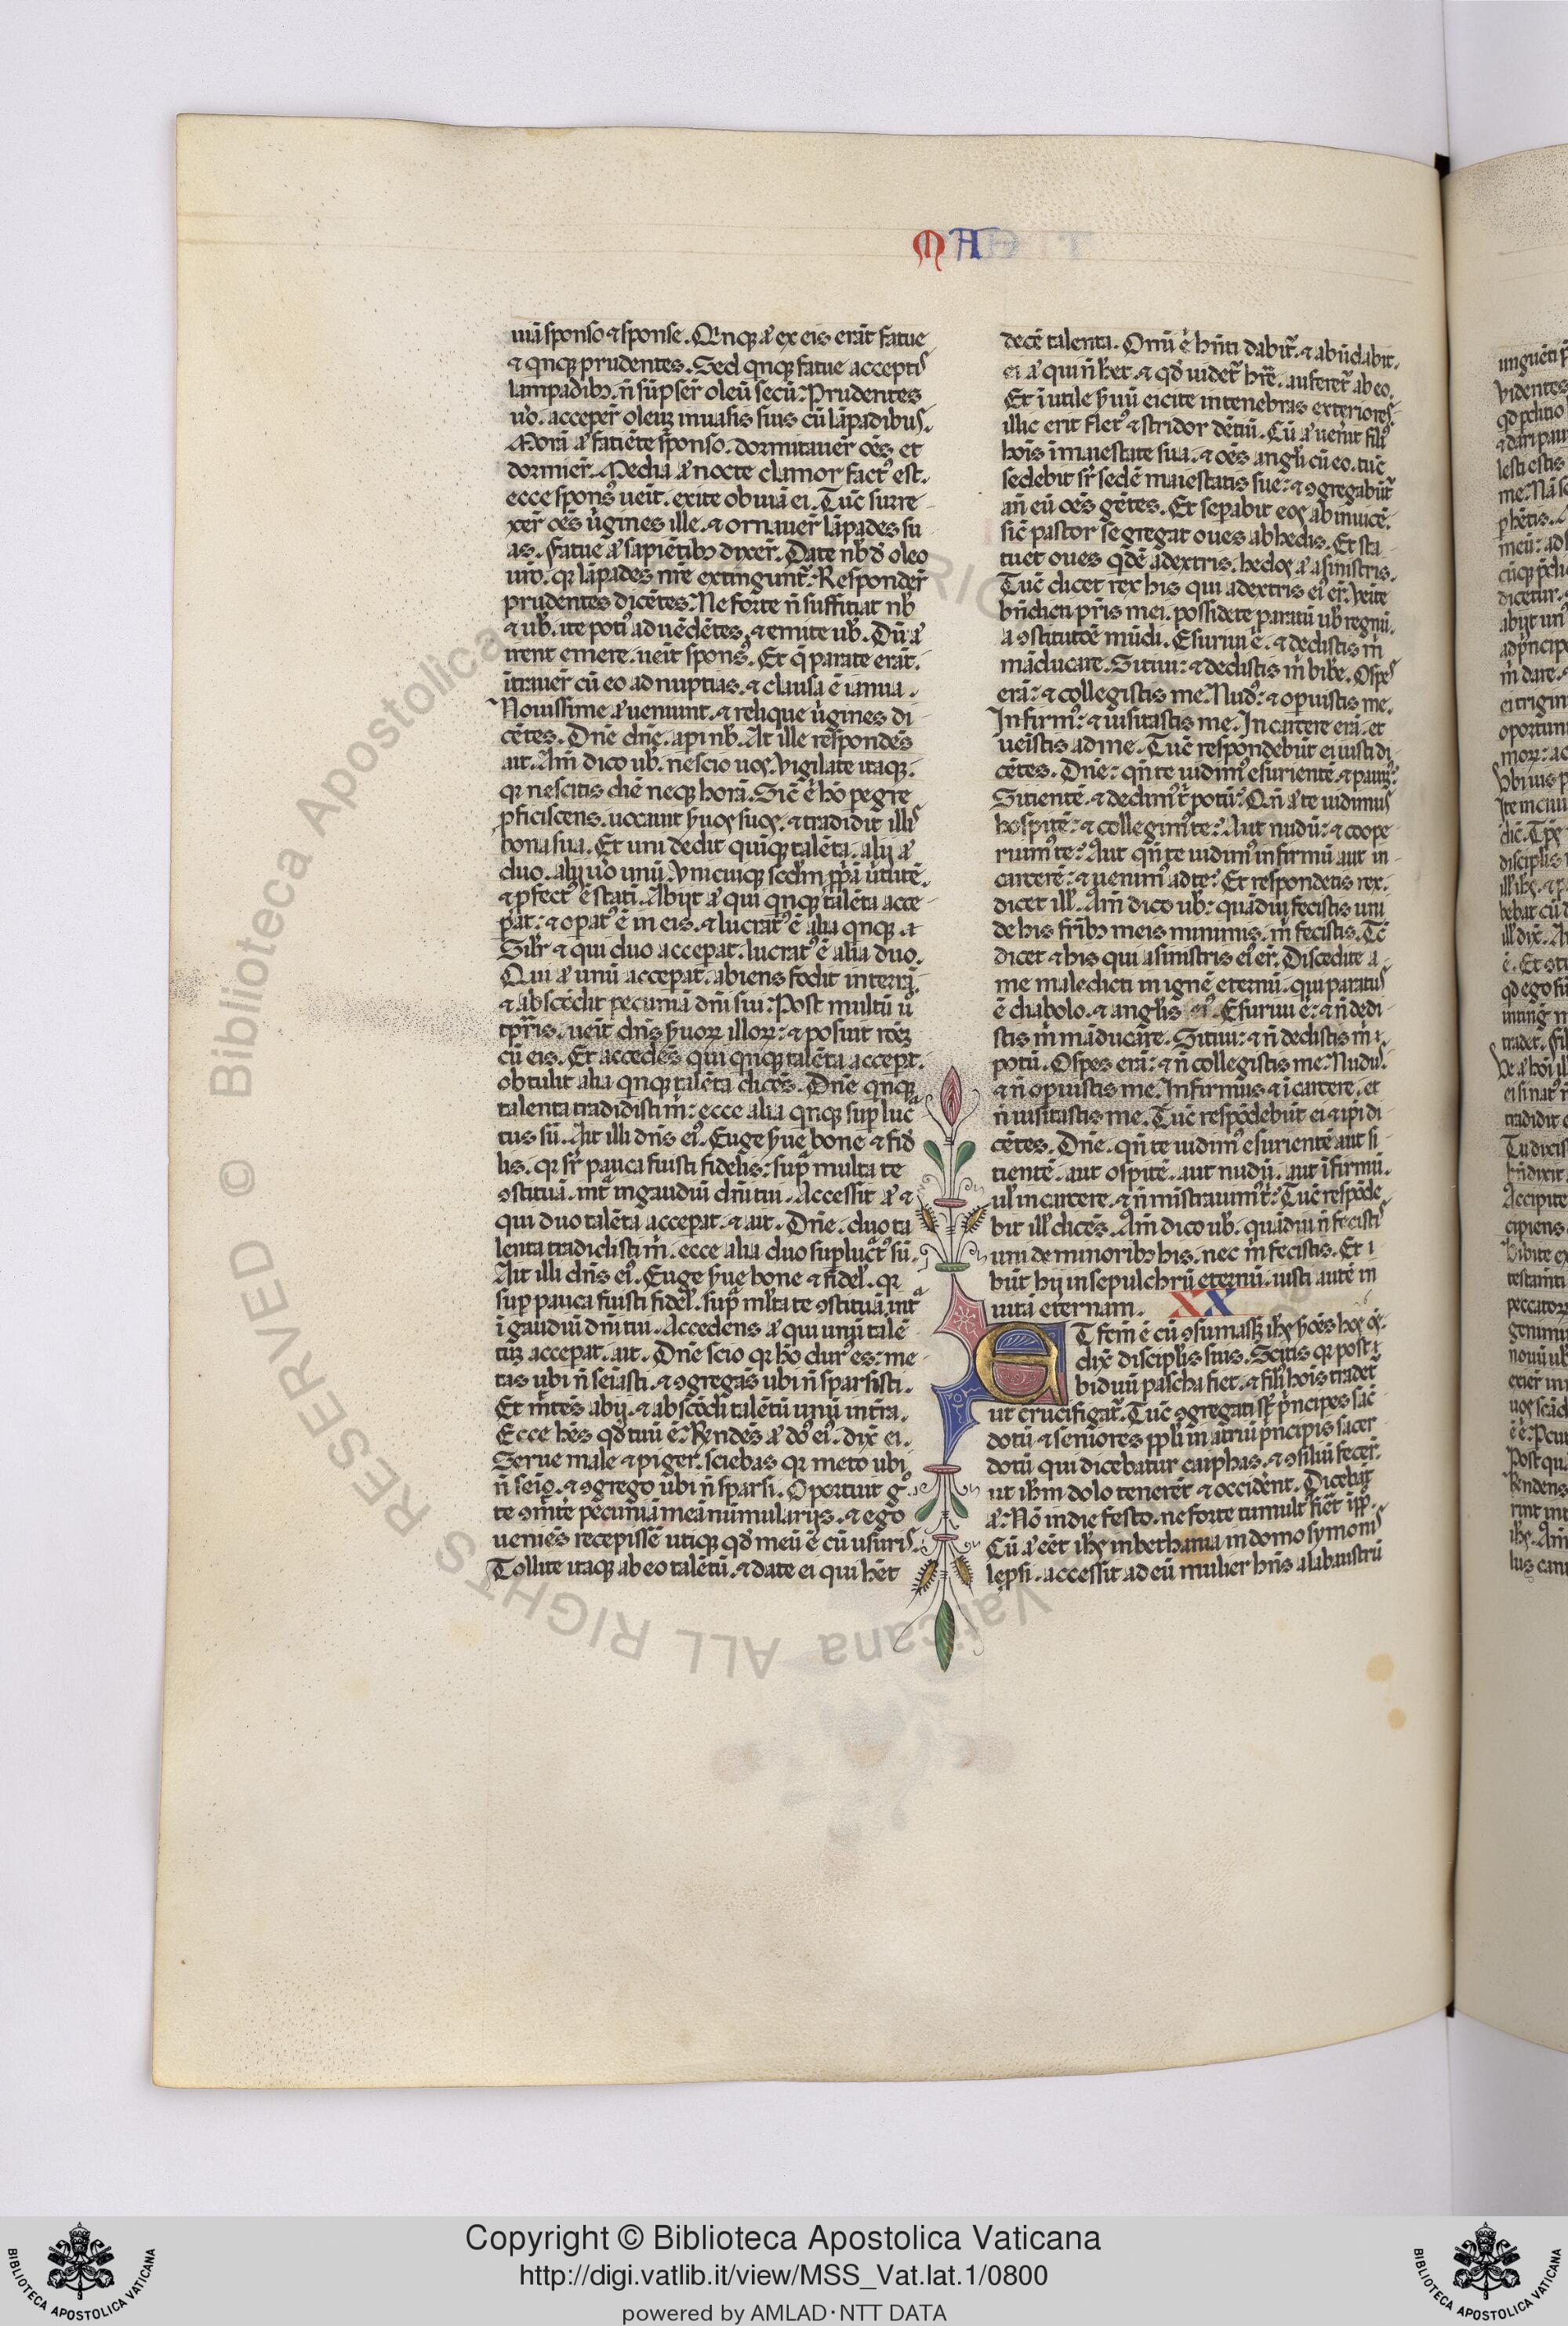 MA
uiā sponso ⁊ sponse. Qnqꝫ aͭ ex eis erāt fatue
⁊ qnqꝫ prudentes. Sed qnqꝫ fatue acceptis
lampadibꝫ. n̄ sūpser̄ oleū secū: Prudentes
uͦo. acceper̄ oleuꝫ in uasis suis cū lāpadibus.
Morā aͭ faciēte sponso. dormitauer̄ oēs et
dormier̄. Media aͭ nocte clamor factꝰ est.
ecce sponsꝰ ueīt. exite obuiā ei. Tūc surre
xer̄ oēs uͥgines ille. ⁊ ornauer̄ lāpades su
as. Fatue aͭ sapiētibꝫ dixer̄. Date nob̄ d̄ oleo
uro. qꝛ lāpades nr̄e extingunt̄: Responder̄
prudentes dicētes: Ne forte n̄ suffitiat nob̄
⁊ ub̄. ite potiꝰ ad uēdētes. ⁊ emite ub̄. Dū aͭ
irent emere. ueīt sponsꝰ. Et q̄ parate erāt.
ītrauer̄ cū eo ad nuptias. ⁊ clausa ē ianua.
Nouissime aͭ ueniunt. ⁊ relique uͥgines di
cētes. Dn̄e dn̄e. api nob̄. At ille respondēs
ait. Am̄ dico ub̄. nescio uos. Vigilate itaqꝫ.
qꝛ nescitis diē neqꝫ horā. Sic̄ e̍ hō pegre
ꝓficiscens. uocauit s̄uos suos. ⁊ tradidit illis
bona sua. Et uni dedit quīqꝫ talēta. alij aͭ
duo. alij uͦo unū. Vnicuiqꝫ scd̄m ꝓpā uͥtutē.
⁊ ꝓfectꝰ ē statī. Abijt aͭ qui qnqꝫ talēta acce
pāt: ⁊ opatꝰ ē in eis. ⁊ lucratꝰ ē alia qnqꝫ. ⁊
Silr̄ ⁊ qui duo accepat. lucratꝰ ē alia duo.
Qui aͭ unū accepat. abiens fodit in terrā.
⁊ abscōdit pecunia dn̄i sui: Post multū uͦ
tp̄ris. ueīt dn̄s s̄uorꝝ illorꝝ: ⁊ posuit rōeꝫ
cū eis. Et accedēs qui qnqꝫ talēta accepāt.
obtulit alia qnqꝫ talēta dicēs. Dn̄e qnqꝫ
talenta tradidisti m̍: ecce alia qnqꝫ suꝑ luc̄
tus sū. Ait illi dn̄s eiꝰ. Euge s̄ue bone ⁊ fid̄
lis. qꝛ sr̄ pauca fuisti fidelis: supͣ multa te
ꝯstituā. intͣ in gaudiū dn̄i tui. Accessit aͭ ⁊
qui duo talēta accepat. ⁊ ait. Dn̄e. duo ta
lenta tradidisti m̍. ecce alia duo suꝑlucͣtꝰ sū.
Ait illi dn̄s eiꝰ. Euge s̄ue bone ⁊ fidel̄. qꝛ
suꝑ pauca fuisti fidel̄. supͣ ml̄ta te ꝯstituā. intͣ
ī gaudiū dn̄i tui. Accedens aͭ qui unū talē
tuꝫ accepat. ait. Dn̄e scio qꝛ hō durꝰ es: me
tis ubi n̄ sēiasti. ⁊ ꝯgregas ubi n̄ sparsisti.
Et tīmēs abij. ⁊ abscōdi talētū unū in tr̄a.
Ecce hēs qd̄ tuū ē. Rn̄des aͭ dōs eiꝰ. dix̄ ei.
Serue male ⁊ piger. sciebas qꝛ meto ubi
n̄ seīo. ⁊ ꝯgrego ubi n̄ sparsi. Oportuit gͦ
te ꝯmīte pecuniā meā nūmularijs. ⁊ ego
ueniēs recepissē utiqꝫ qd̄ meū ē cū usuris.
Tollite itaqꝫ ab eo talētū. ⁊ date ei qui hēt
decē talenta. Oīnū e̍ hn̄ti dabit̄. ⁊ abūdabit.
ei aͭ qui n̄ h̄et. ⁊ qd̄ uidet̄ hr̄e. auferet̄ ab eo.
Et īutile s̄uū eicite in tenebras exteriores.
illic erit fletꝰ ⁊ stridor dētiū. Cū aͭ uen̄it filiꝰ
hoīs ī maiestate sua. ⁊ oēs angl̄i cū eo. tūc
sedebit sr̄ sedē maiestatis sue: ⁊ ꝯgregabūt̄
an̄ eū oēs gētes. Et sepabit eos ab inuicē.
sic̄ pastor segregat oues ab hedis. Et sta
tuet oues qdē a dextris. hedos aͭ a sinistris.
Tūc dicet rex his qui a dextris eiꝰ er̄. Veīte
bn̄dicti pr̄is mei. possidete paratū ub̄ regnū.
a ꝯstitutōe mūdi. Esuriui e̍. ⁊ dedistis m̍
māducare. Sitiui: ⁊ dedistis m̍ bibe. Ospes
erā: ⁊ collegistis me. Nudꝰ: ⁊ opuistis me.
Infirmꝰ: ⁊ uisitastis me. In carcere erā. et
ueīstis ad me. Tūc respondebūt ei iusti di
cētes. Dn̄e: qn̄ te uidimꝰ esurientē. ⁊ pauimꝰ:
Sitientē. ⁊ dedimꝰ tͥ potū: Qn̄ aͭ te uidimus
hospitē: ⁊ collegimꝰ te: Aut nudū: ⁊ coope
ruimꝰ te: Aut qn̄ te uidimꝰ infirmū aut in
carcerē: ⁊ uenimꝰ ad te: Et respondēs rex.
dicet ill̄. Am̄ dico ub̄: quādiu fecistis uni
de his fr̄ibꝫ meis minimis. m̍ fecistis. Tc̄
dicet ⁊ his qui a sinistris eiꝰ er̄. Discedite a
me maledicti in ignē eternū: qui paratus
ē diabolo. ⁊ angl̄is eiꝰ. Esuriui e̍: ⁊ n̄ dedi
stis m̍ māducāre. Sitiui: ⁊ n̄ dedistis m̍
potū. Ospes erā: ⁊ n̄ collegistis me: Nudus.
⁊ n̄ opuistis me. Infirmus ⁊ ī carcere. et
n̄ uisitastis me. Tūc respōdebūt ei ⁊ ip̄i di
cētes. Dn̄e. qn̄ te uidimꝰ esurientē aut si
tientē. aut ospitē. aut nudū. aut īfirmū.
ul̄ in carcere. ⁊ n̄ mīstrauimꝰ tͥ: Tūc respōde
bit ill̄ dicēs. Am̄ dico ub̄. quādiu n̄ fecistis
uni de minoribꝫ his. nec m̍ fecistis. Et i
būt hij in sepulchrū eternū. iusti autē in
uitā eternam. XX
ET fcm̄ ē cū ꝯsumass̄ ih̄s s̄moēs hos oēs.
dix̄ discipl̄is suis. Scitis qꝛ post
biduū pascha fiet. ⁊ filiꝰ hoīs tradet̄
ut crucifigat̄. Tūc ꝯgregati st̄ pͥncipes sac̄
dotū ⁊ seniores ppl̄i in atriū pͥncipis sacer
dotū qui dicebatur caiphas. ⁊ ꝯsiliū fecer̄.
ut ih̄m dolo tenerēt ⁊ occiderēt. Dicebāt
aͭ: Nō in die festo. ne forte tumultꝰ fiēt ī ppl̄o.
Cū aͭ eēt ih̄s in bethania in domo symonis
lepsi. accessit ad eū mulier hn̄s alabaustrū
Copyright © Biblioteca Apostolica Vaticana
http://digi.vatlib.it/view/MSS_Vat.lat.1/0800
powered by AMLAD·NTT DATA